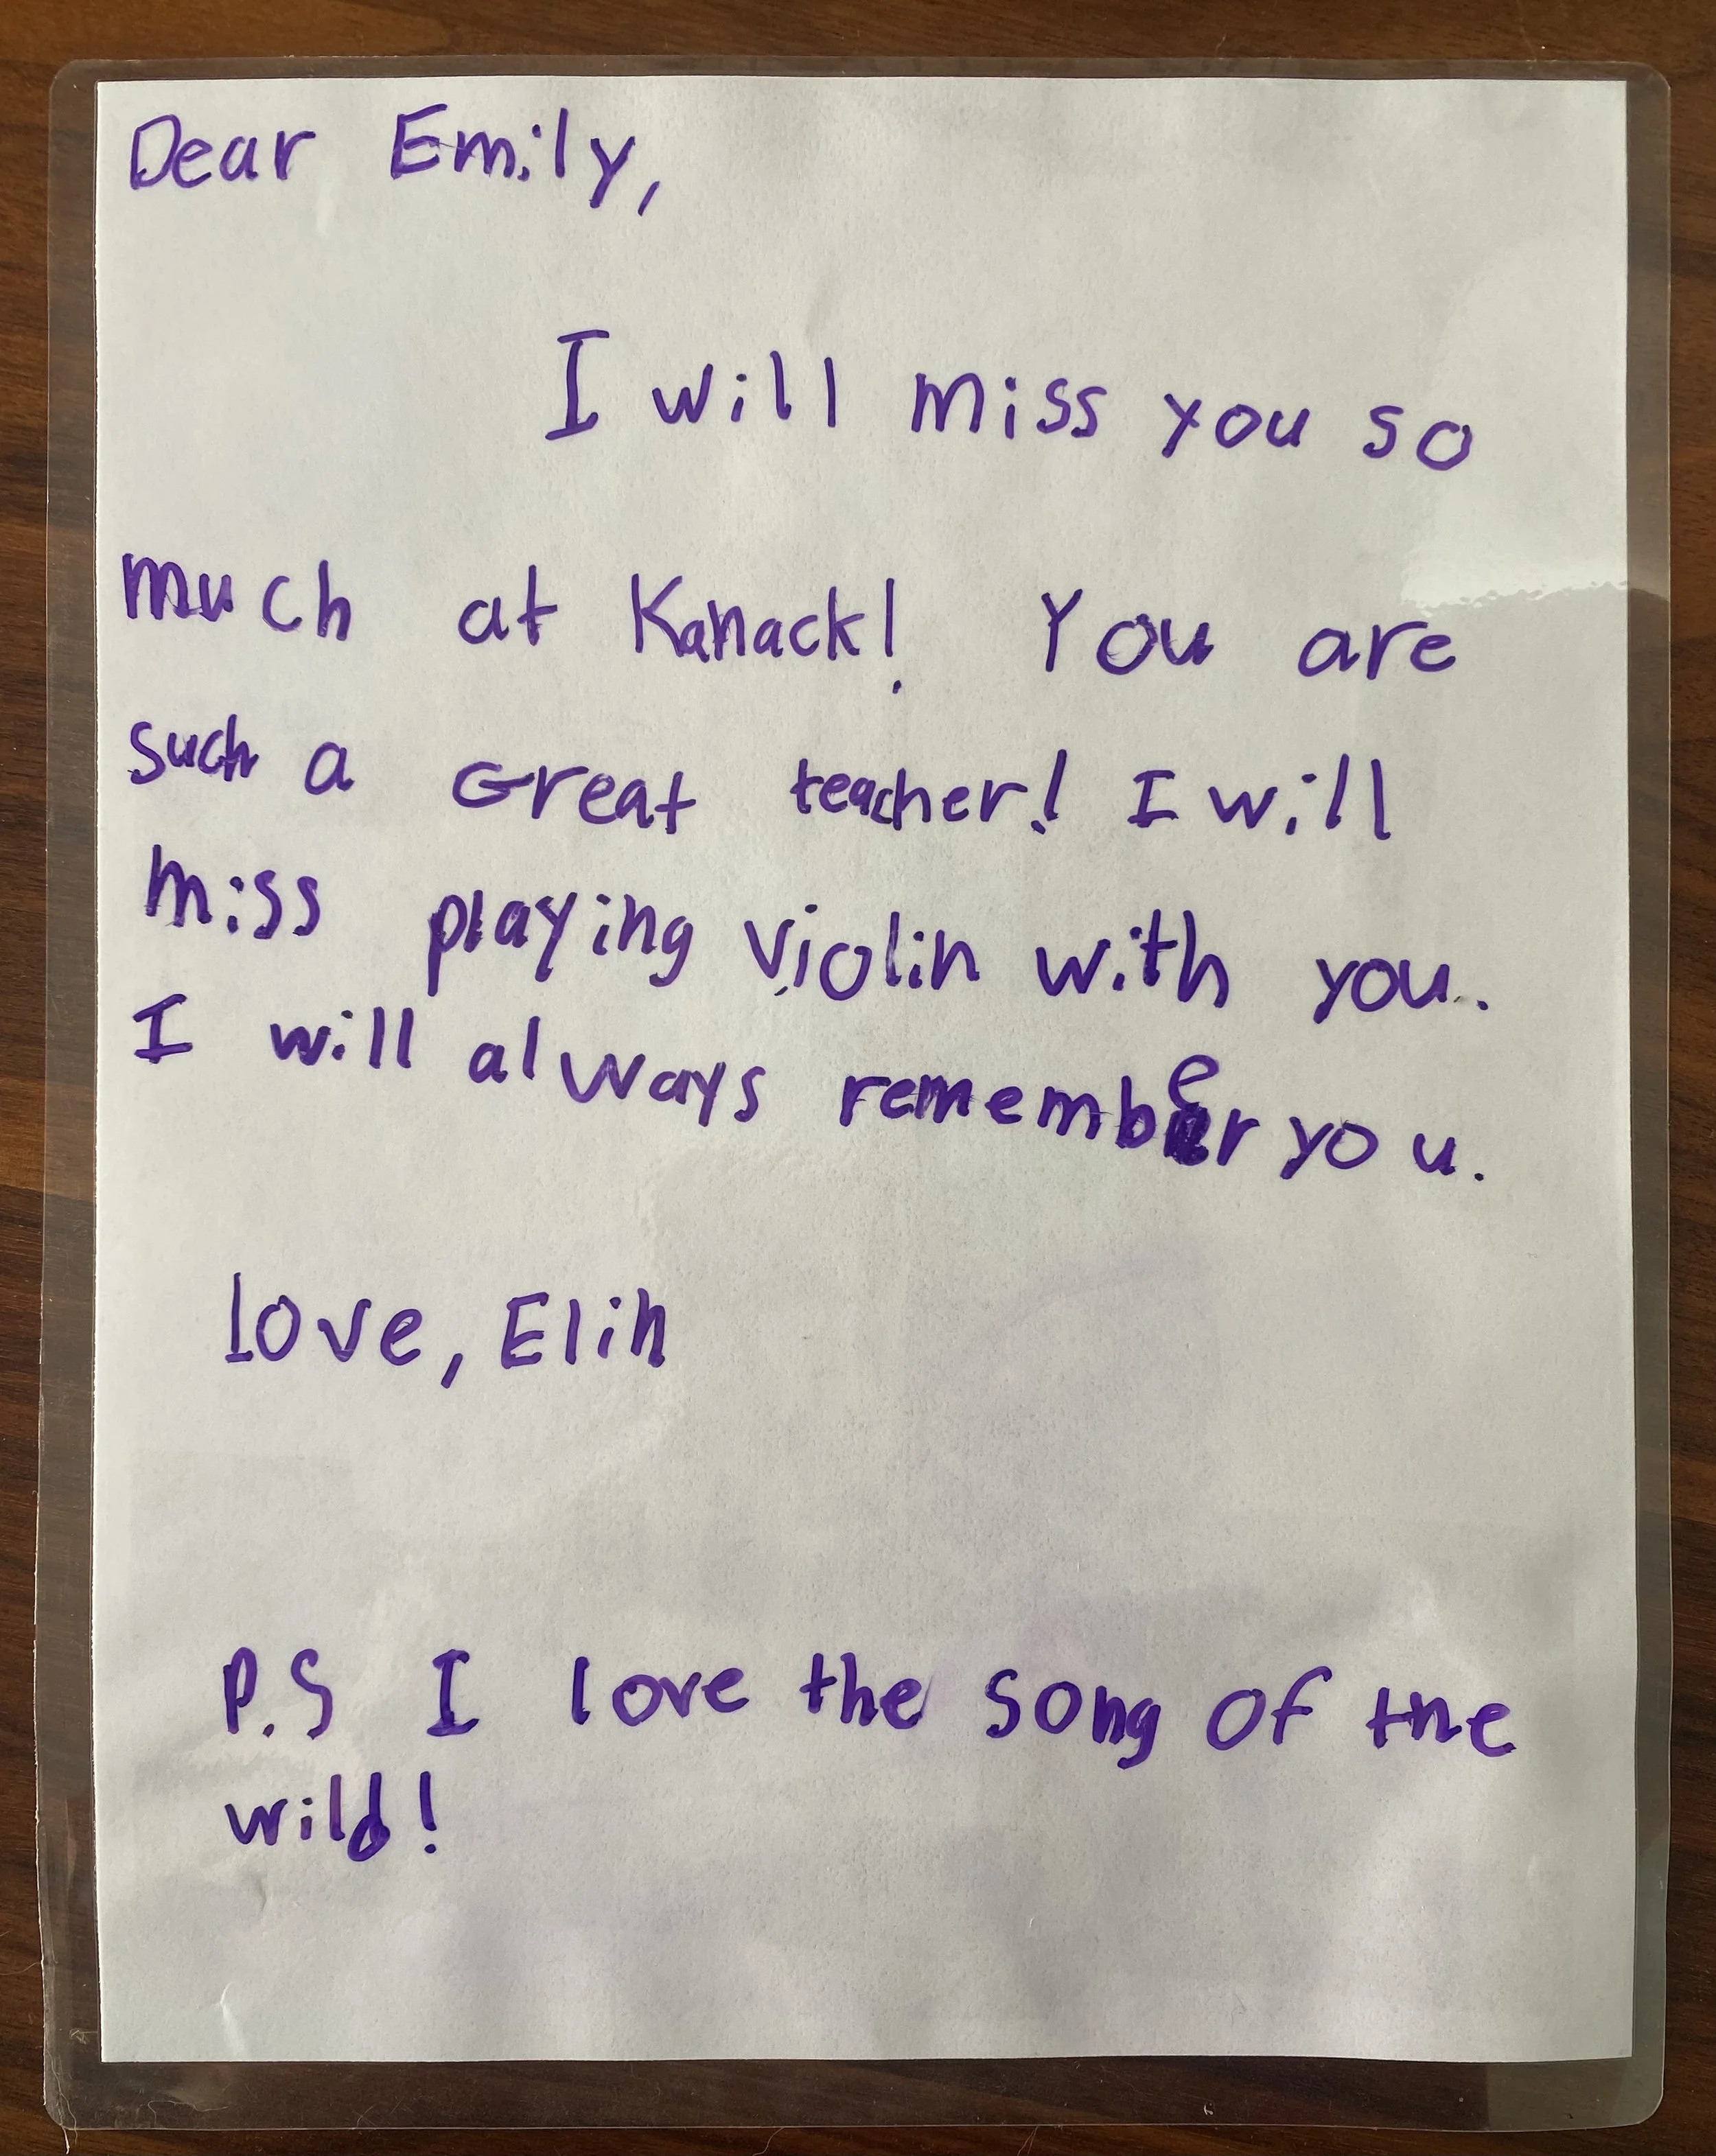 Dear Emily,
I will miss you so
much at Kanack! You are
such a Great teacher! I will
miss playing violin with you.
I will always remember you.
love, Elin
P.S I love the song of the
wild!